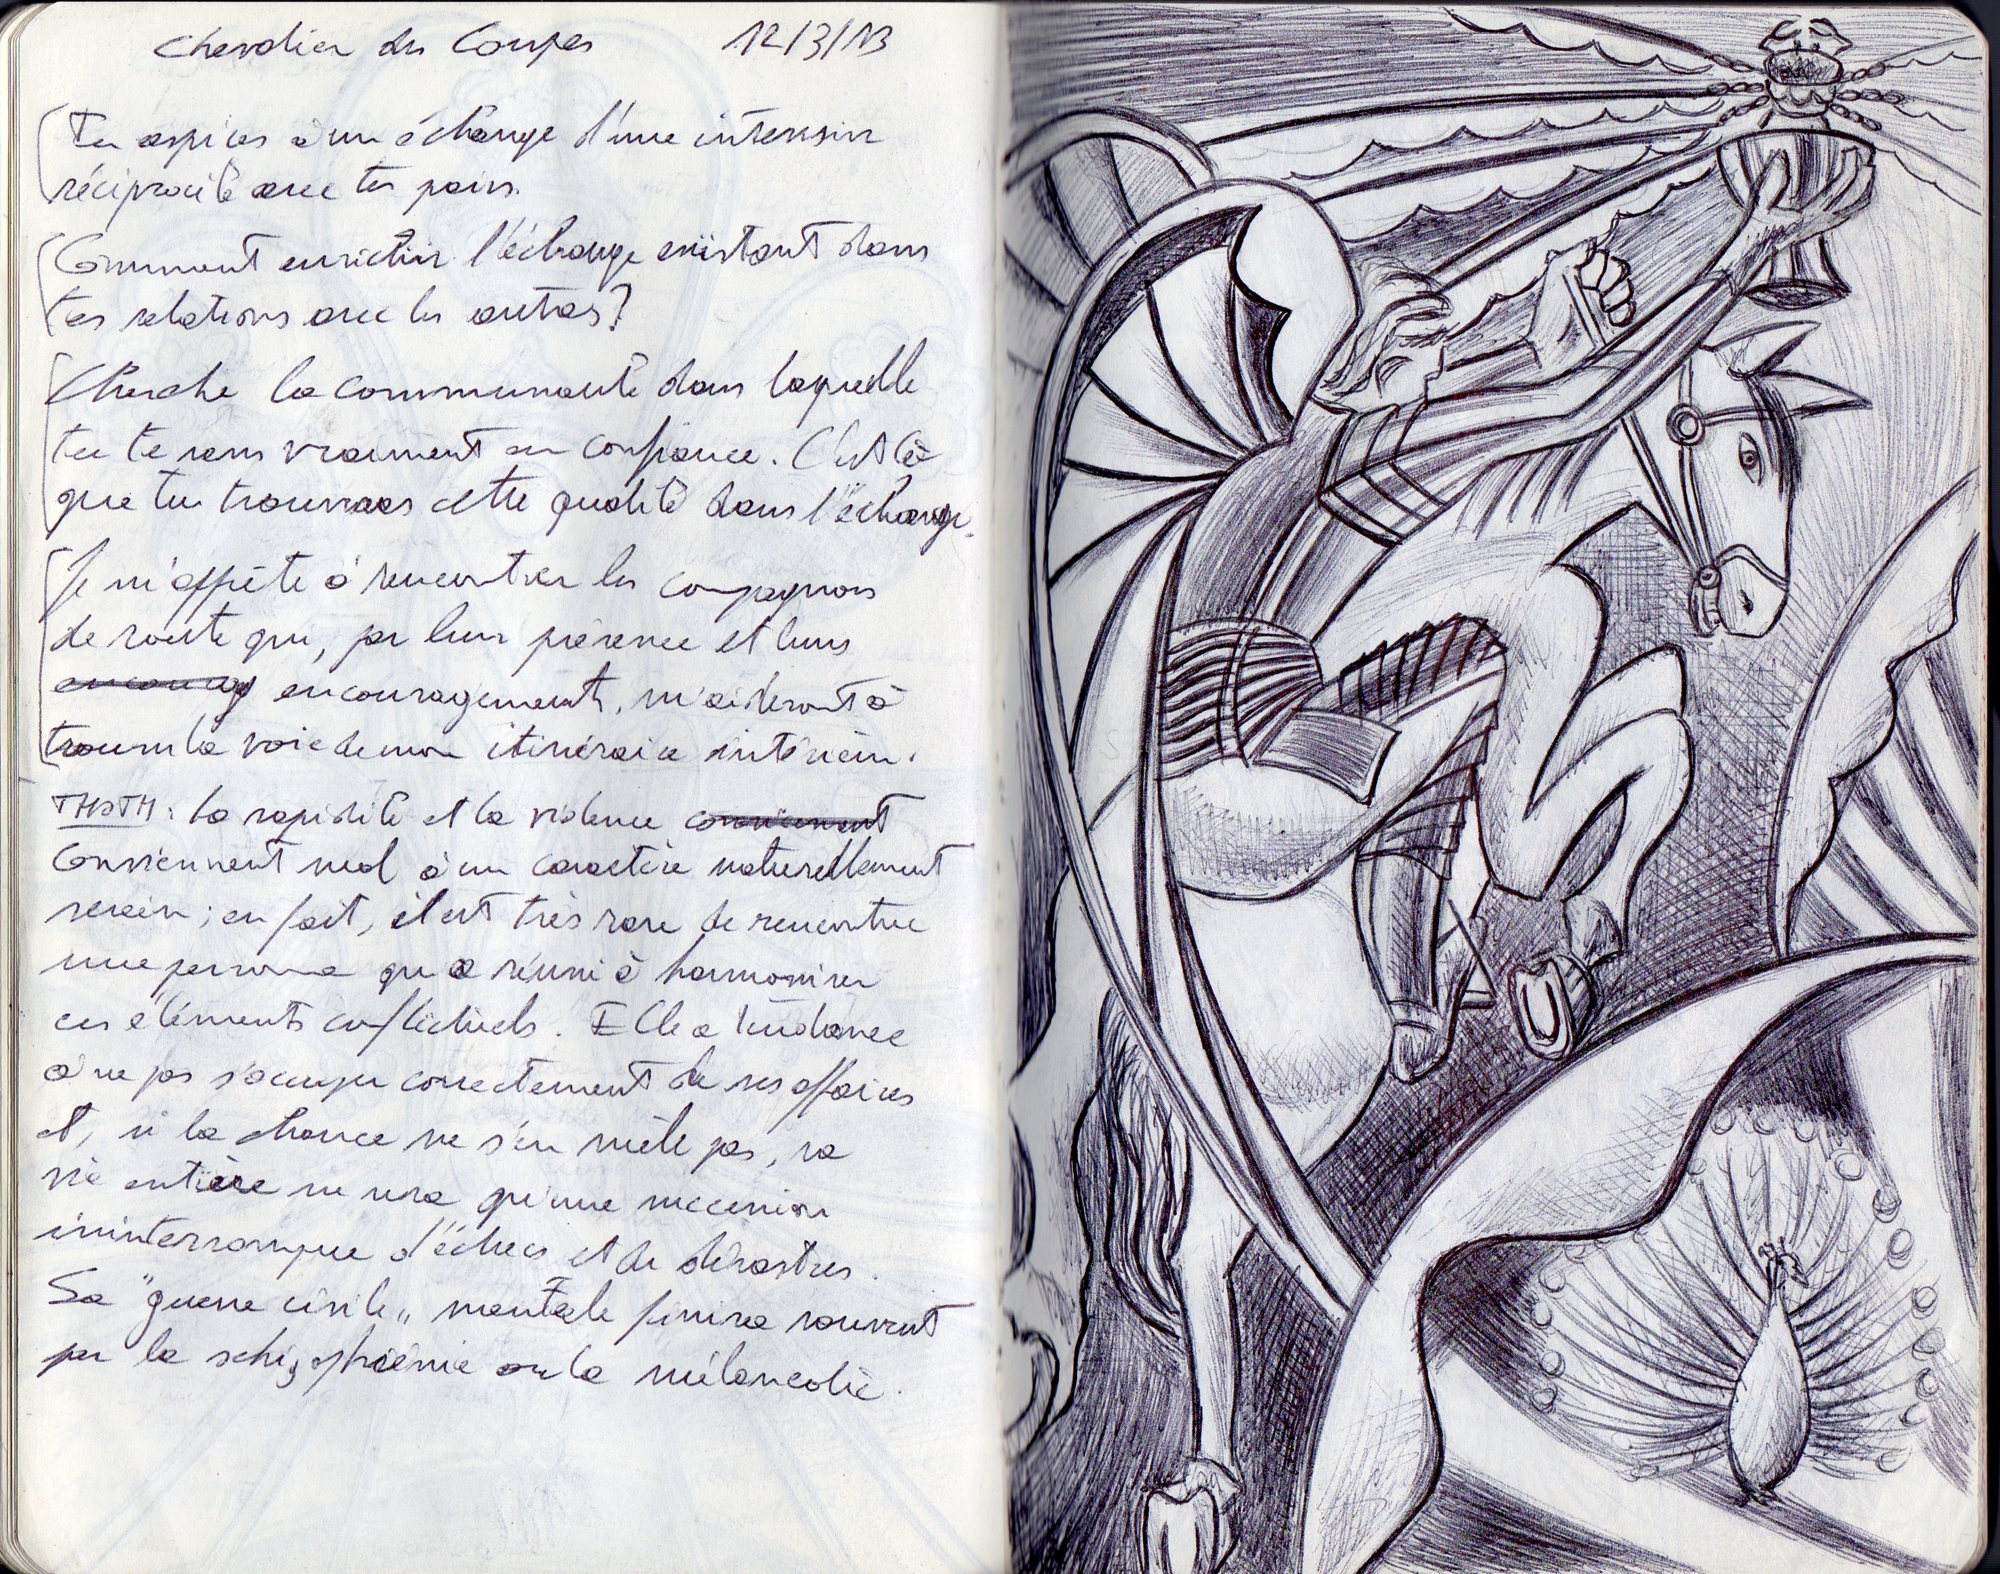 Chevalier des Coupes 12/3/13
Tu aspires à un échange d'une intensive
réciprocité avec tes pairs.
Comment enrichir l'échange existant dans
tes relations avec les autres?
Cherche la communauté dans laquelle
tu te sens vraiment en confiance. C'est là
que tu trouveras cette qualité dans l'échange.
Je m'apprête à rencontrer les compagnons
de route qui, par leur présence et leurs
encourag encouragements, m'aideront à
trouver la voie de mon itinéraire intérieur.
THOTH: La rapidité et la violence conviennent
Conviennent mal à un caractère naturellement
serein; en fait, il est très rare de rencontrer
une personne qui a réussi à harmoniser
ces éléments conflictuels. Elle a tendance
à ne pas s'occuper correctement de ses affaires
et, si la chance ne s'en mêle pas, sa
vie entière ne sera qu'une succession
ininterrompue d'échecs et de désastres.
Sa "guerre civile" mentale finira souvent
par la schizophrénie ou la mélancolie.